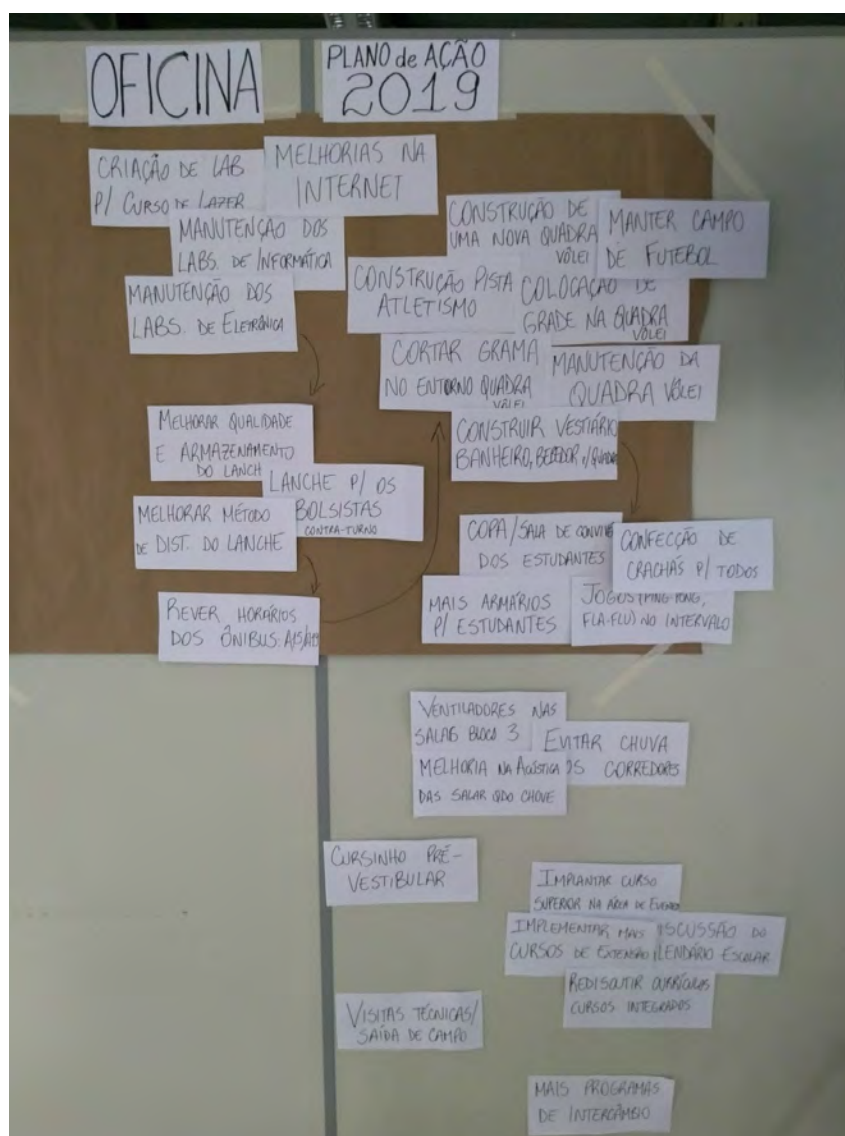 OFICINA
PLANO de AÇÃO
2019
CRIAÇÃO DE LAB
P/ CURSO DE LAZER
MELHORIAS NA
INTERNET
MANUTENÇÃO DOS
LABS. DE INFORMÁTICA
MANUTENÇÃO DOS
LABS. DE ELETRÔNICA
CONSTRUÇÃO DE
UMA NOVA QUADRA
VÔLEI
MANTER CAMPO
DE FUTEBOL
CONSTRUÇÃO PISTA
ATLETISMO
COLOCAÇÃO DE
GRADE NA QUADRA
VÔLEI
CORTAR GRAMA
NO ENTORNO QUADRA
VÔLEI
MANUTENÇÃO DA
QUADRA VÔLEI
CONSTRUIR VESTIÁRIO
BANHEIRO, BEBEDOR P/ QUADRA
MELHORAR QUALIDADE
E ARMAZENAMENTO
DO LANCH
LANCHE P/ OS
BOLSISTAS
CONTRA-TURNO
MELHORAR MÉTODO
DE DIST. DO LANCHE
REVER HORÁRIOS
DOS ÔNIBUS:
COPA/SALA DE CONVIVE
DOS ESTUDANTES
CONFECÇÃO DE
CRACHÁS P/ TODOS
MAIS ARMÁRIOS
P/ ESTUDANTES
JOGOS (PING-PONG,
FLA-FLU) NO INTERVALO
VENTILADORES NAS
SALAS BLOCO 3
EVITAR CHUVA
OS CORREDORES
MELHORIA NA ACÚSTICA
DAS SALAR QDO CHOVE
CURSINHO PRÉ-
VESTIBULAR
IMPLANTAR CURSO
SUPERIOR NA ÁREA DE EVENTO
IMPLEMENTAR MAIS
CURSOS DE EXTENSÃO
ISCUSSÃO DO
LENDÁRIO ESCOLAR
REDISCUTIR CURRÍCULOS
CURSOS INTEGRADOS
VISITAS TÉCNICAS/
SAÍDA DE CAMPO
MAIS PROGRAMAS
DE INTERCÂMBIO